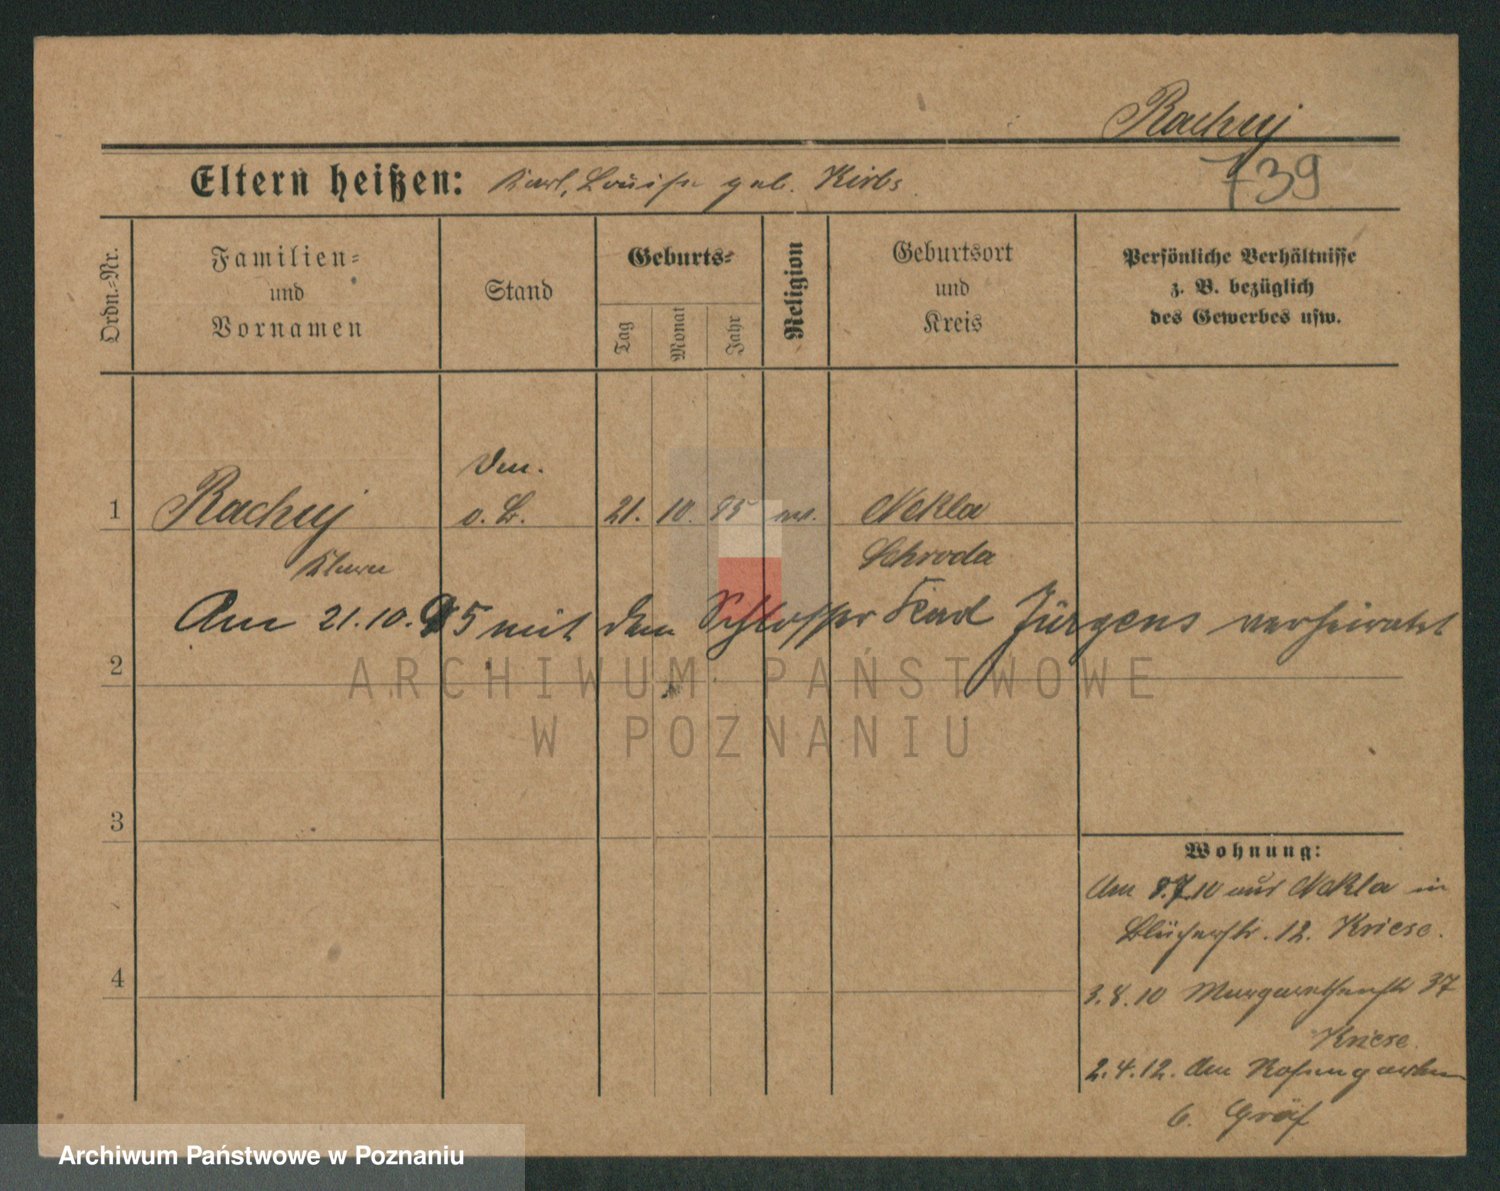 Rachuj
739
Eltern heißen: Karl, Louise geb. Kirbs
Ordn.-Nr.
Familien-
und
Vornamen
Stand
Geburts-
Tag
Monat
Jahr
Religion
Geburtsort
und
Kreis
Persönliche Verhältnisse
z. B. bezüglich
des Gewerbes usw.
1
Rachuj
o. B.
21. 10. 85 ev.
Nekla
Schroda
Am 21.10. 5 mit dem Schlosser Karl Jürgens verheiratet
2
3
4
Wohnung:
Am 8.7.10 aus Nekla in
Blücherstr. 12. Kriese.
3.8.10 Margarethenstr 37
Kriese.
2.4.12. Am Rosengarten
6. Gräf
ARCHIWUM PAŃSTWOWE
W POZNANIU
Archiwum Państwowe w Poznaniu